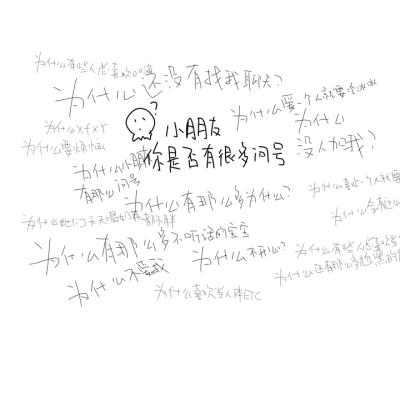 为什么有些人总喜欢
为什么还没有找我聊天?
为什么爱一个人就要冷冰冰
为什么xfxy
小朋友
为什么
为什么要烦恼
你是否有很多问号
没人加我?
为什么小朋友
有那么问号
为什么有那么多为什么?
为什么喜欢一个人就要
为什么她们天天喝奶茶都不胖
为什么会
为什么有那么多不听话的宝宝
为什么不开心?
为什么有些人总喜欢
为什么还有那么多
为什么不爱我
为什么喜欢当人体ETC